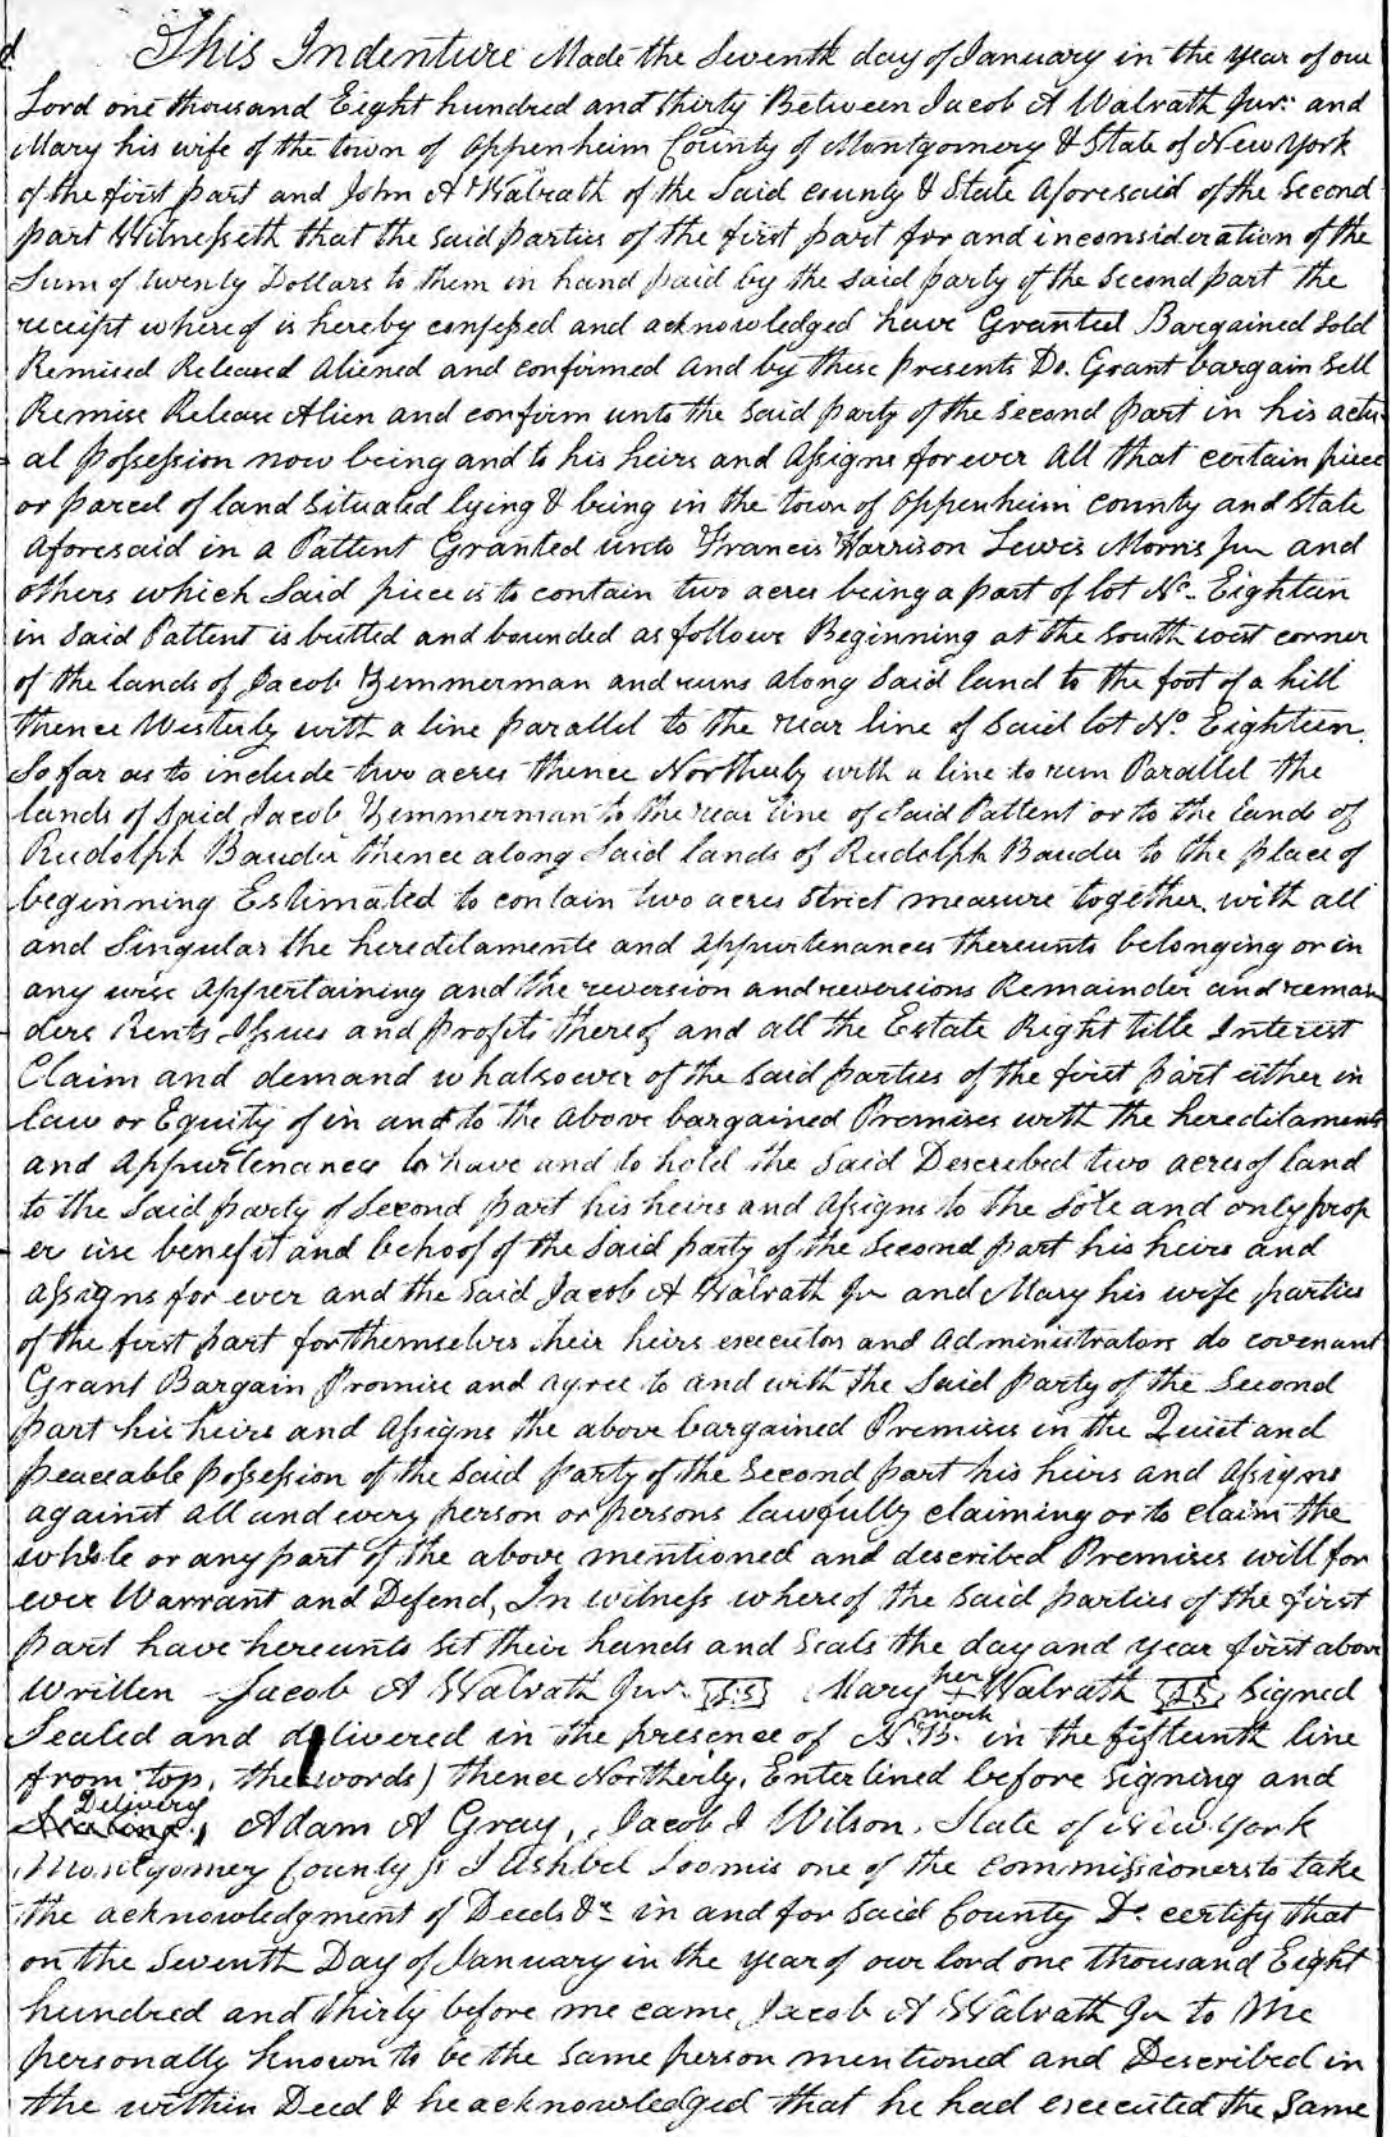 This Indenture Made the Seventh day of January in the year of our
Lord one thousand Eight hundred and thirty Between Jacob A Walrath Junr. and
Mary his wife of the town of Oppenheim County of Montgomery & State of New York
of the first part and John A Walrath of the Said county & State Aforesaid of the Second
part Witnesseth that the said parties of the first part for and in consideration of the
Sum of twenty Dollars to them in hand paid by the said party of the Second part the
receipt whereof is hereby confessed and acknowledged have Granted Bargained Sold
Remised Released Aliened and confirmed And by these presents Do. Grant bargain Sell
Remise Release Alien and confirm unto the Said party of the Second part in his actu-
al possession now being and to his heirs and Assigns for ever All that certain piece
or parcel of land Situated lying & being in the town of Oppenheim county and State
Aforesaid in a Pattent Granted unto Francis Harrison Lewis Morris Jun and
others which Said piece is to contain two acres being a part of lot No. Eighteen
in Said Pattent is butted and bounded as follows Beginning at the South west corner
of the lands of Jacob Zemmerman and runs along Said land to the foot of a hill
thence Westerly with a line parallel to the rear line of Said lot No. Eighteen.
So far as to include two acres thence Northerly with a line to run Parallel the
lands of Said Jacob Zemmerman to the rear line of Said Pattent or to the lands of
Rudolph Bauder thence along Said lands of Rudolph Bauder to the place of
beginning Estimated to contain two acres Strict measure together. with all
and Singular the hereditaments and Appurtenances thereunto belonging or in
any wise Appertaining and the reversion and reversions Remainder and remain
ders Rents Issues and profits thereof and all the Estate Right title Interest
Claim and demand whatsoever of the Said parties of the first part either in
law or Equity of in and to the Above bargained Premises with the hereditaments
and Appurtenances to have and to hold the Said Described two acres of land
to the Said party of Second part his heirs and Assigns to the Sole and only prop
er use benefit and behoof of the Said party of the Second part his heirs and
Assigns for ever and the said Jacob A Walrath Jun and Mary his wife parties
of the first part for themselves their heirs executors and Administrators do covenant
Grant Bargain Promise and Agree to and with the Said Party of the Second
part his heirs and Assigns the above bargained Premises in the Quiet and
peaceable possession of the Said party of the Second part his heirs and Assigns
against all and every person or persons lawfully claiming or to claim the
whole or any part of the above mentioned and described Premises will for
ever Warrant and Defend, In witness whereof the Said parties of the first
part have hereunto Set their hands and Seals the day and year first above
written Jacob A Walrath Junr. L.S Mary her + mark Walrath L.S. Signed
Sealed and delivered in the presence of N.B. in the fifteenth line
from top, the words) thence Northerly, Enterlined before Signing and
Delivery Sealing, Adam A Gray, Jacob I Wilson. State of New York
Montgomery County ss I Ashbel Loomis one of the commissioners to take
the acknowledgment of Deeds &c in and for Said County Do. certify that
on the Seventh Day of January in the year of our lord one thousand Eight
hundred and thirty before me came Jacob A Walrath Jun to Me
personally known to be the Same person mentioned and Described in
the within Deed & he acknowledged that he had executed the Same